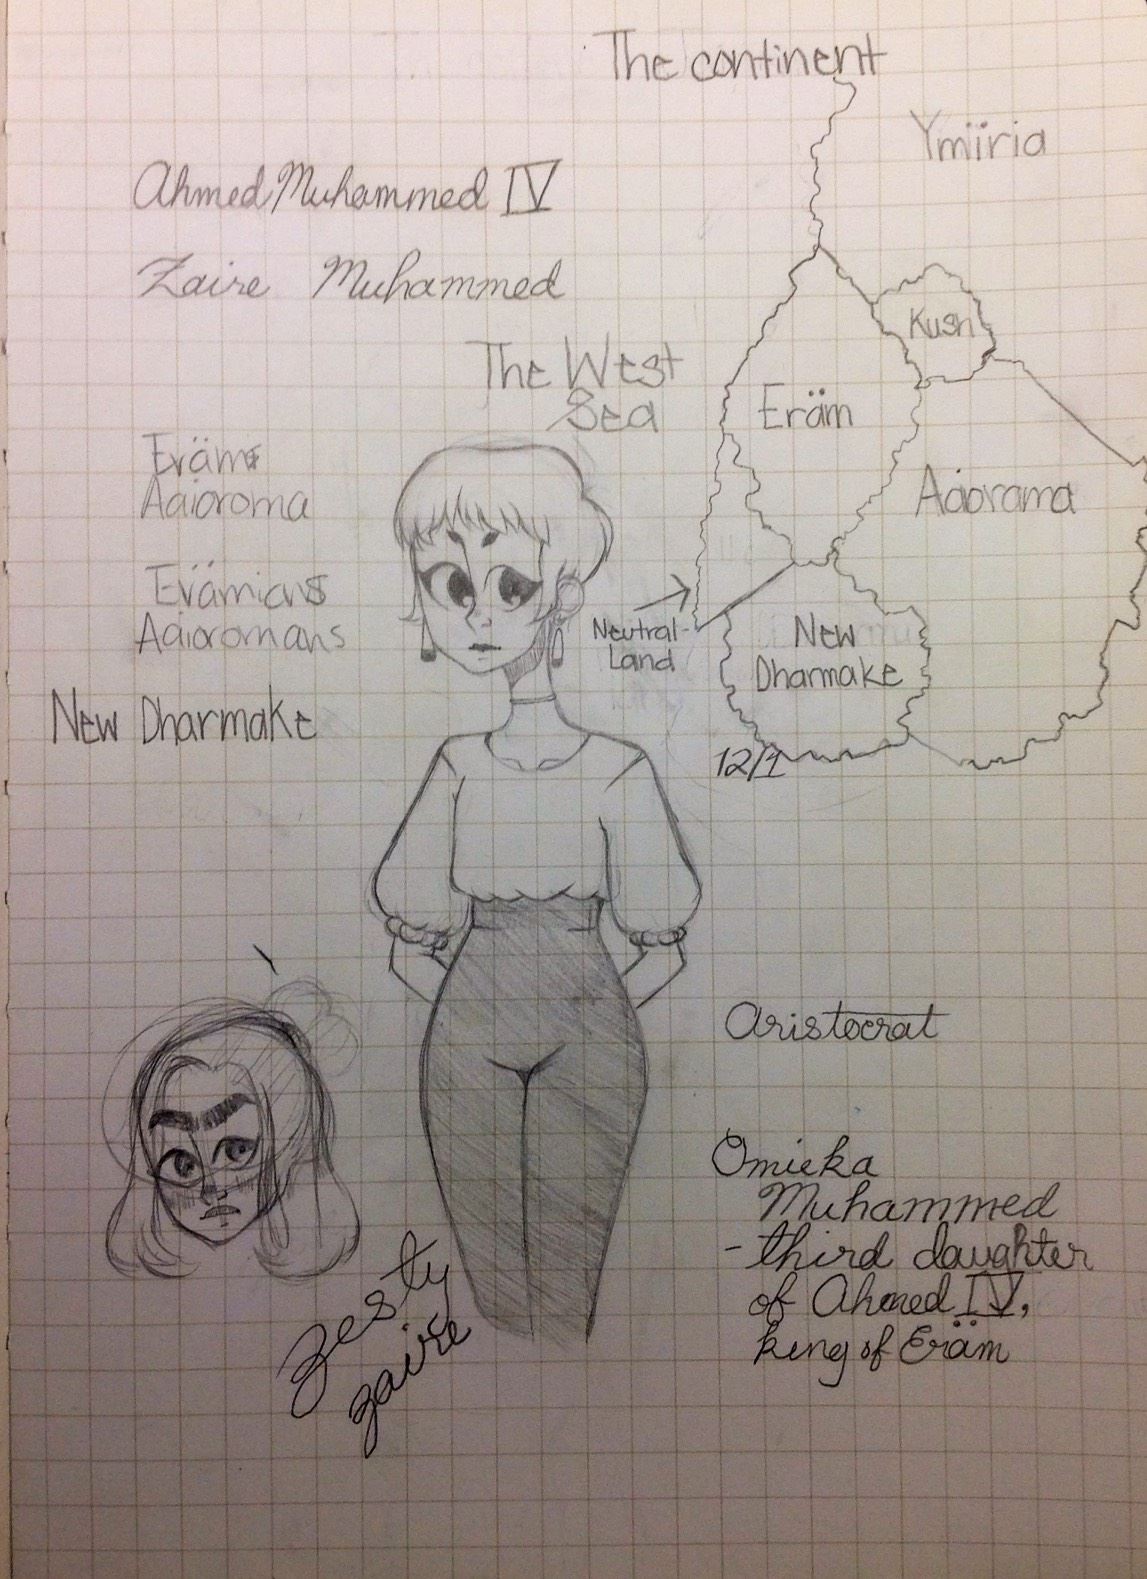 The continent
Ymiiria
Ahmed Muhammed IV
Zaire Muhammed
Kush
The West
Sea
Eräm
Eräms
Aaioroma
Aaiorama
Erämians
Aaioromans
Neutral-
Land
New
Dharmake
New Dharmake
12/1
Aristocrat
Omieka
Muhammed
- third daughter
of Ahmed IV,
king of Eräm
zesty
zaire